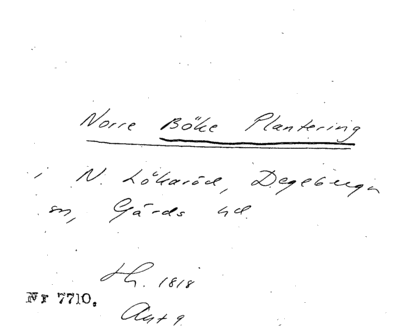 Norre Böke Plantering
i N. Lökaröd, Degeberga
sn, Gärds hd.
Hh. 1818
Akt 9.
Nr 7710.